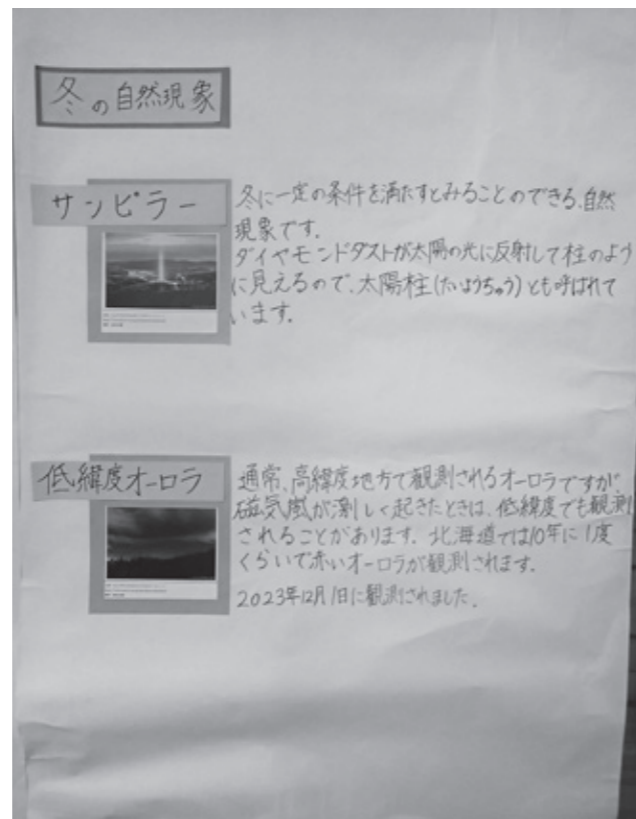 冬の自然現象
サンピラー
冬に一定の条件を満たすとみることのできる、自然
現象です。
ダイヤモンドダストが太陽の光に反射して柱のよう
に見えるので、太陽柱(たいようちゅう)とも呼ばれて
います。
低緯度オーロラ
通常、高緯度地方で観測されるオーロラですが、
磁気嵐が激しく起きたときは、低緯度でも観測
されることがあります。北海道では10年に1度
くらいで赤いオーロラが観測されます。
2023年12月1日に観測されました。